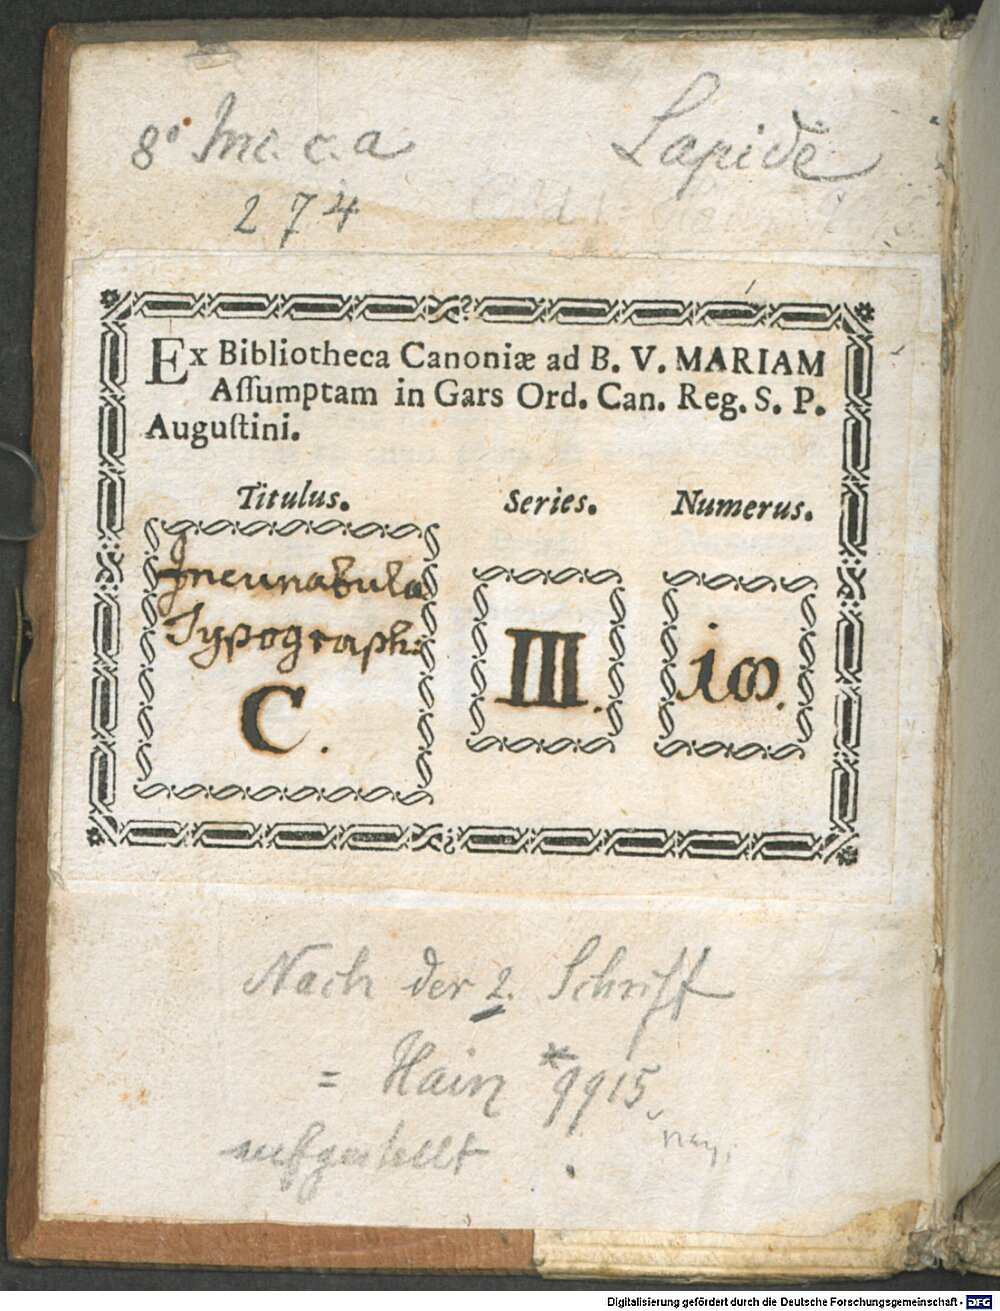 8° Inc. c. a. Lapide
274
Ex Bibliotheca Canoniæ ad B. V. MARIAM
Aſſumptam in Gars Ord. Can. Reg. S. P.
Auguſtini.
Titulus. Series. Numerus.
Incunabula
Typograph:
C. III. 100.
Nach der 2. Schrift
= Hain *9915
aufgestellt
Digitalisierung gefördert durch die Deutsche Forschungsgemeinschaft - DFG